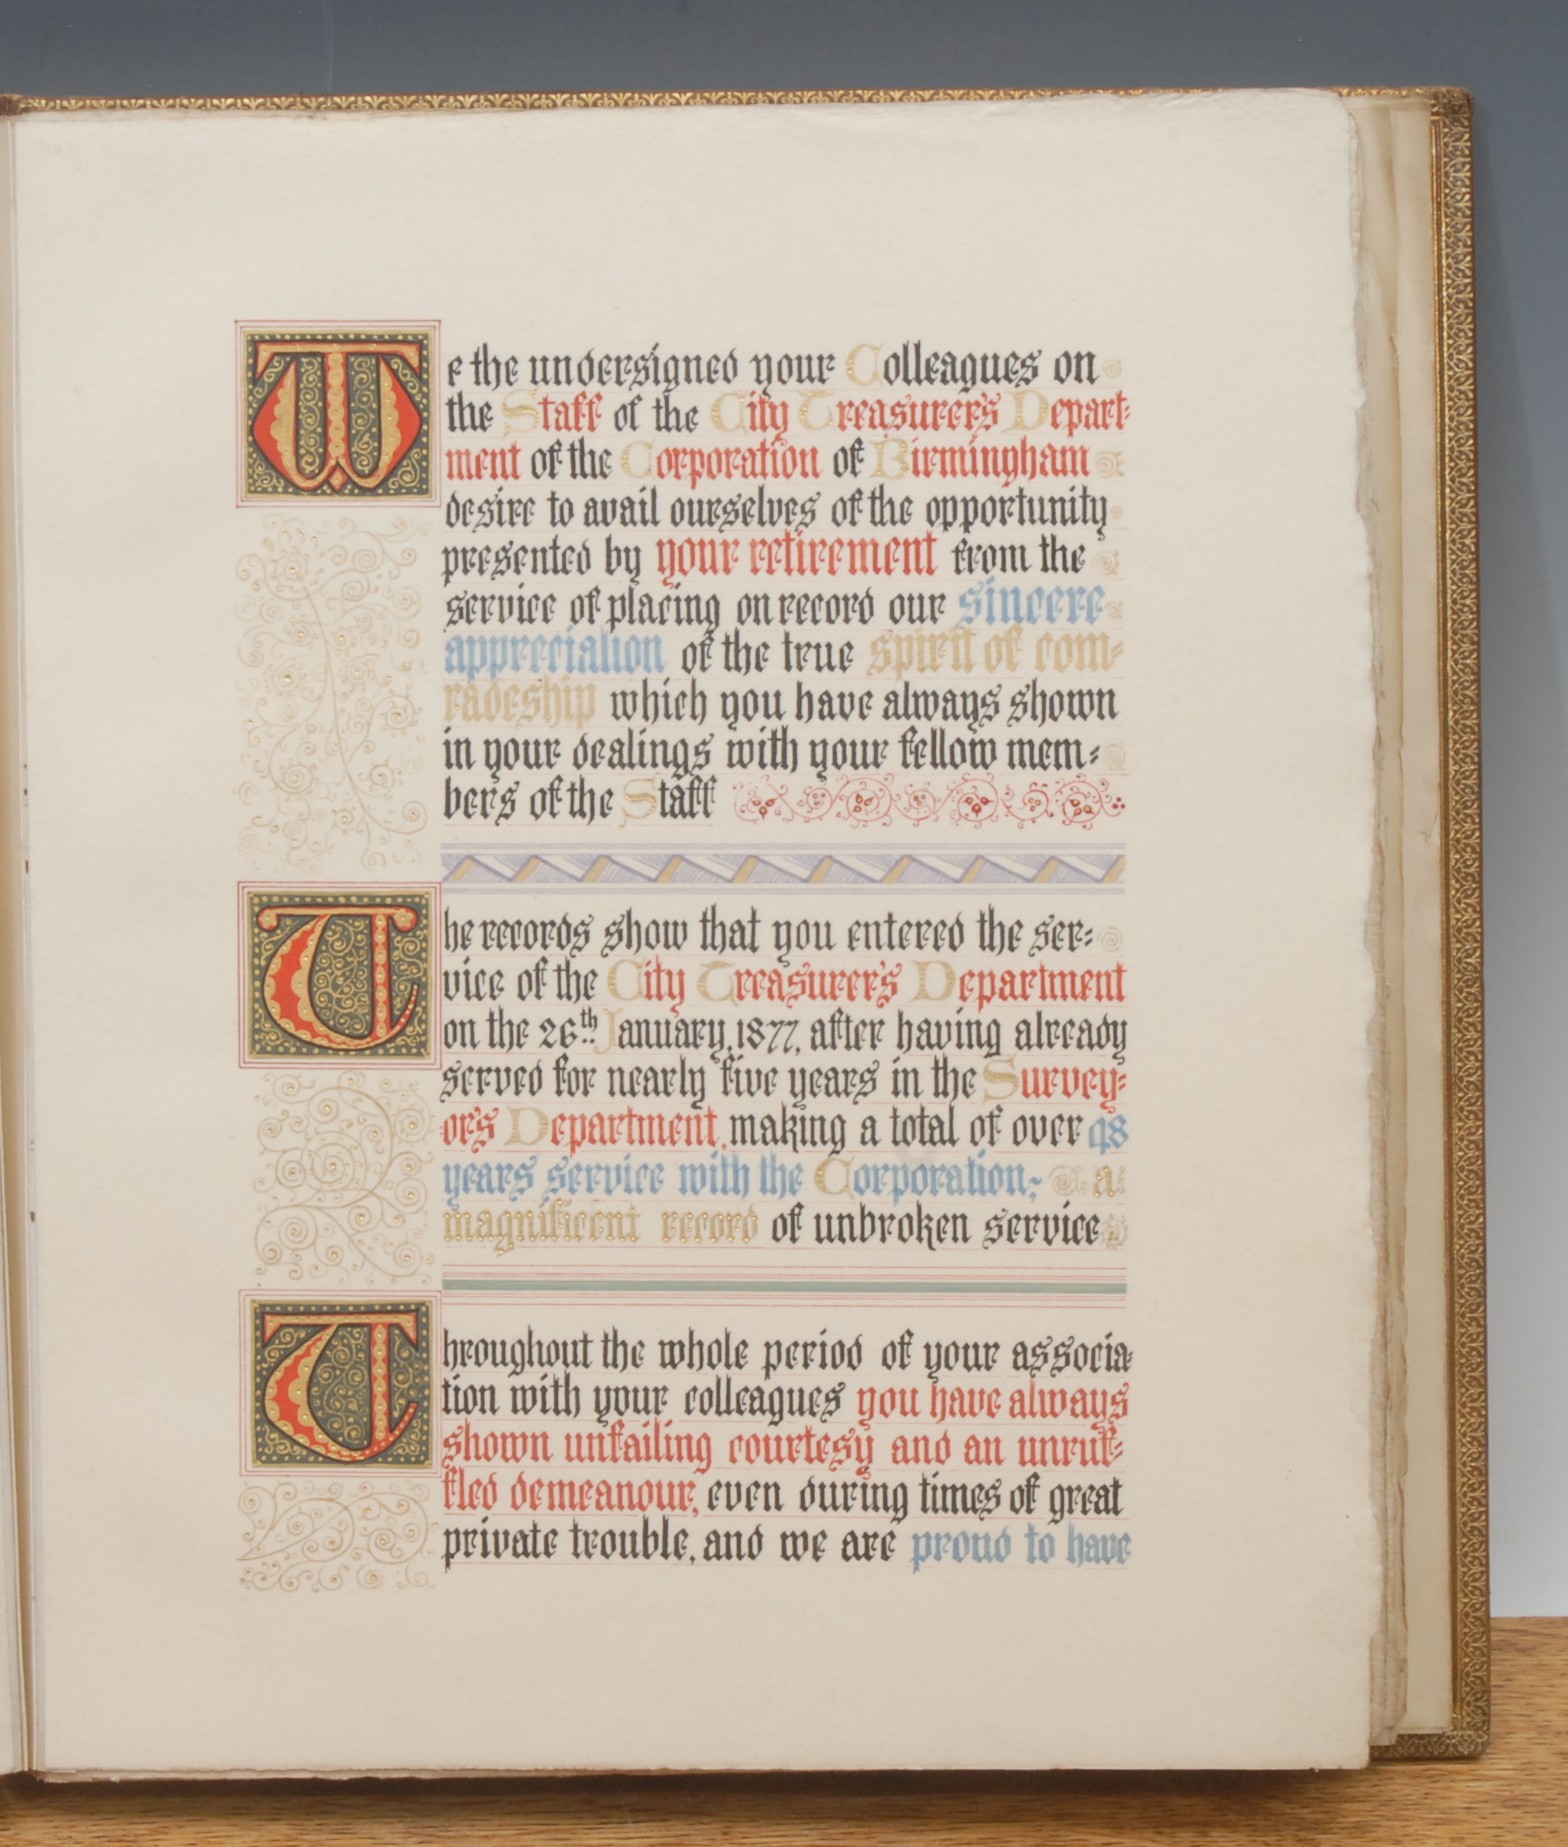 We the undersigned your Colleagues on
the Staff of the City Treasurer's Depart-
ment of the Corporation of Birmingham
desire to avail ourselves of the opportunity
presented by your retirement from the
service of placing on record our sincere
appreciation of the true spirit of com-
radeship which you have always shown
in your dealings with your fellow mem-
bers of the Staff
The records show that you entered the ser-
vice of the City Treasurer's Department
on the 26th January, 1877, after having already
served for nearly five years in the Survey-
or's Department, making a total of over 48
years service with the Corporation;- a
magnificent record of unbroken service
Throughout the whole period of your associa-
tion with your colleagues you have always
shown unfailing courtesy and an unruf-
fled demeanour, even during times of great
private trouble, and we are proud to have